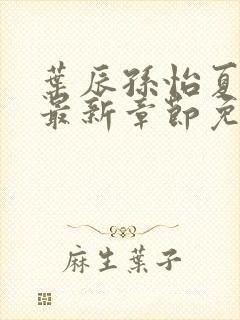 葉辰孫怡夏
最新章節免
麻生葉子